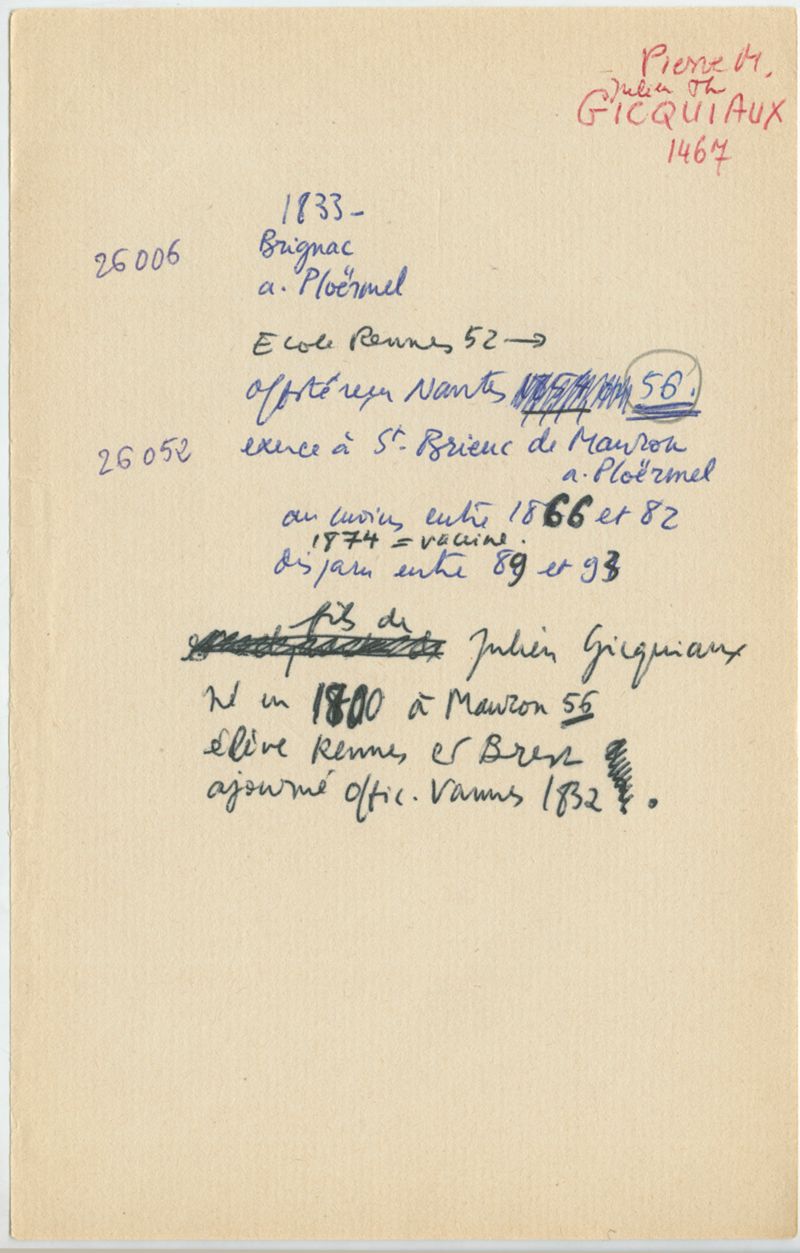 Pierre M.
Julien Th
GICQUIAUX
1467
1833-
26006 Brignac
a. Ploërmel
Ecole Rennes 52 →
offsté reçu Nantes 56.
26052 exerce à St-Brieuc de Mauron
a. Ploërmel
au moins entre 1866 et 82
1874 = vaccine.
disparu entre 89 et 93
fils de
Julien Gicquiaux
né en 1800 à Mauron 56
élève Rennes et Brest
ajourné offic. Vannes 1832 .